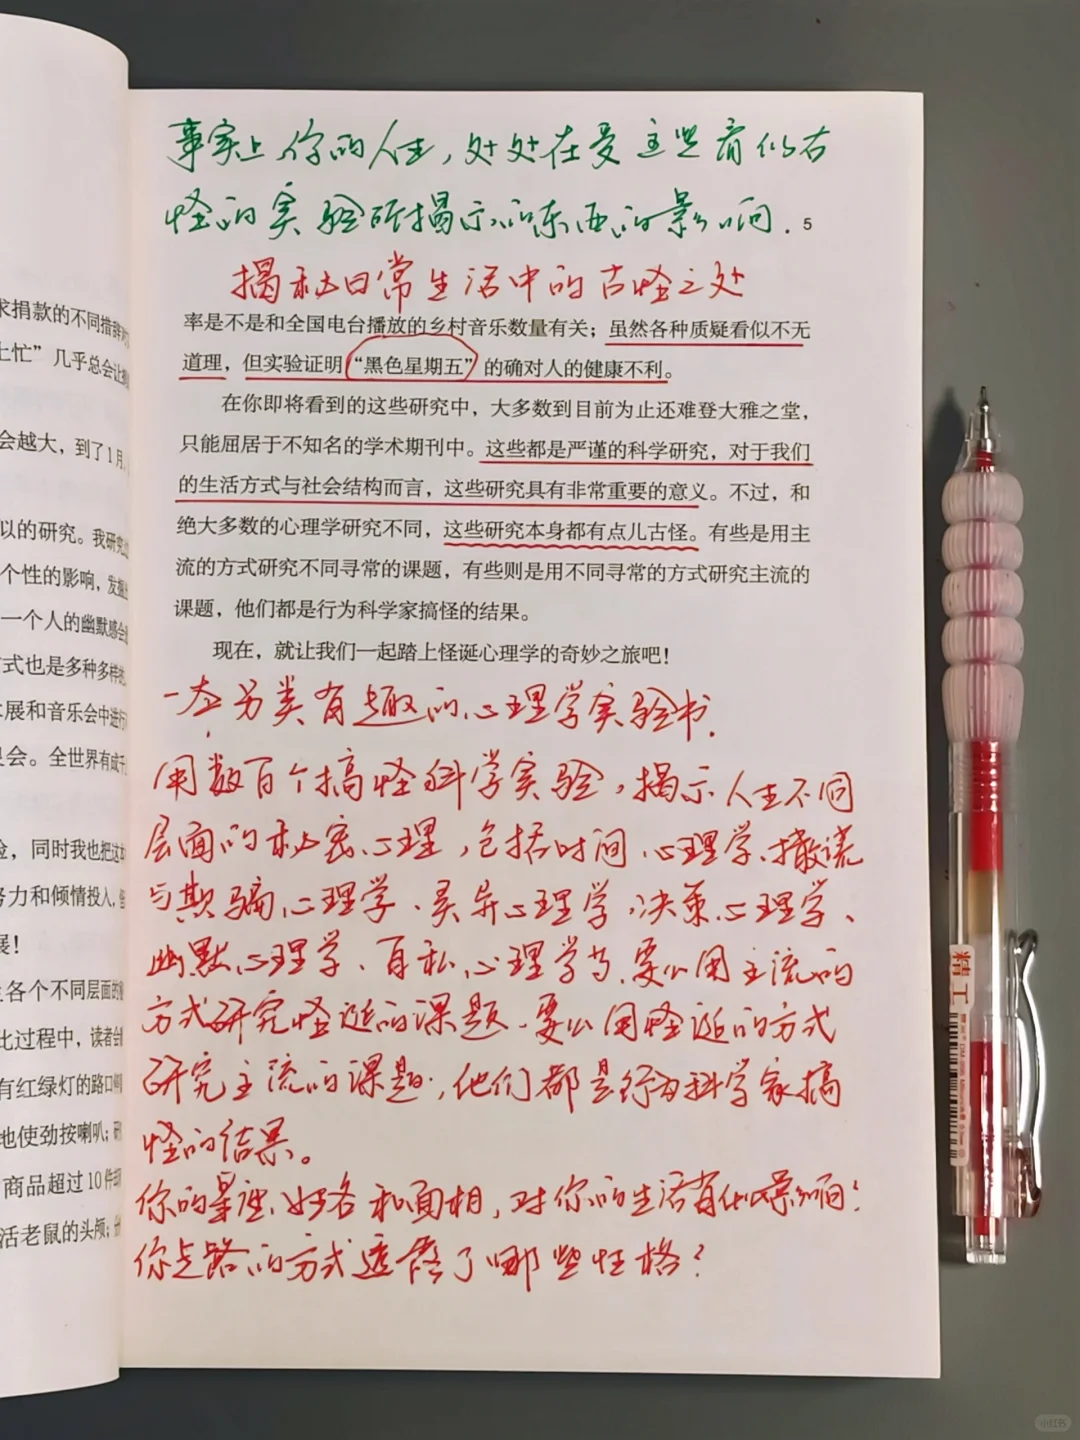 事实上你的人生,处处在受这些看似古
怪的实验所揭示的东西的影响.
5
揭秘日常生活中的古怪之处
率是不是和全国电台播放的乡村音乐数量有关；虽然各种质疑看似不无
道理，但实验证明“黑色星期五”的确对人的健康不利。
在你即将看到的这些研究中，大多数到目前为止还难登大雅之堂，
只能屈居于不知名的学术期刊中。这些都是严谨的科学研究，对于我们
的生活方式与社会结构而言，这些研究具有非常重要的意义。不过，和
绝大多数的心理学研究不同，这些研究本身都有点儿古怪。有些是用主
流的方式研究不同寻常的课题，有些则是用不同寻常的方式研究主流的
课题，他们都是行为科学家搞怪的结果。
现在，就让我们一起踏上怪诞心理学的奇妙之旅吧！
一本另类有趣的心理学实验书.
用数百个搞怪科学实验,揭示人生不同
层面的秘密心理,包括时间心理学、撒谎
与欺骗心理学、灵异心理学、决策心理学、
幽默心理学、自私心理学等.要么用主流的
方式研究怪诞的课题.要么用怪诞的方式
研究主流的课题,他们都是行为科学家搞
怪的结果。
你的星座、姓名和面相,对你的生活有何影响?
你走路的方式透露了哪些性格?
求捐款的不同措辞
上忙”几乎总会让
会越大，到了1月
以的研究。我研究
个性的影响，发掘
一个人的幽默感会
式也是多种多样
展和音乐会中进行
会。全世界有成千
，同时我也把这
努力和倾情投入，
展！
各个不同层面的
比过程中，读者会
有红绿灯的路口
地使劲按喇叭；研
商品超过10件
活老鼠的头颅；
精工
小红书